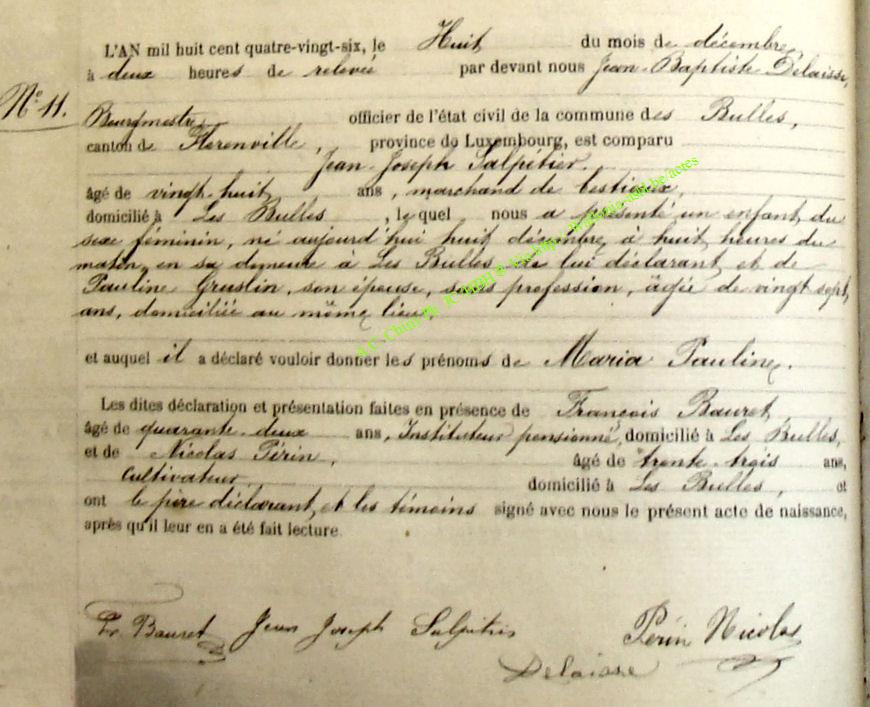 L'AN mil huit cent quatre-vingt-six, le Huit du mois de décembre,
à deux heures de relevée par devant nous Jean-Baptiste Delaisse,
N° 11.
Bourgmestre officier de l'état civil de la commune des Bulles,
canton de Florenville, province de Luxembourg, est comparu
Jean-Joseph Salpétier.
âgé de vingt-huit ans, marchand de bestiaux,
domicilié à Les Bulles, le quel nous a présenté un enfant du
sexe féminin, né aujourd'hui huit décembre, à huit heures du
matin, en sa demeure à Les Bulles, de lui déclarant et de
Pauline Gruslin, son épouse, sans profession, âgée de vingt sept
ans, domiciliée au même lieu,
et auquel il a déclaré vouloir donner les prénoms de Maria Pauline.
Les dites déclaration et présentation faites en présence de François Bauret,
âgé de quarante-deux ans, Instituteur pensionné, domicilié à Les Bulles,
et de Nicolas Périn, âgé de trente-trois ans,
Cultivateur, domicilié à Les Bulles, et
ont le père déclarant, et les témoins signé avec nous le présent acte de naissance,
après qu'il leur en a été fait lecture.
Fr Bauret Jean Joseph Salpétier Périn Nicolas
Delaisse